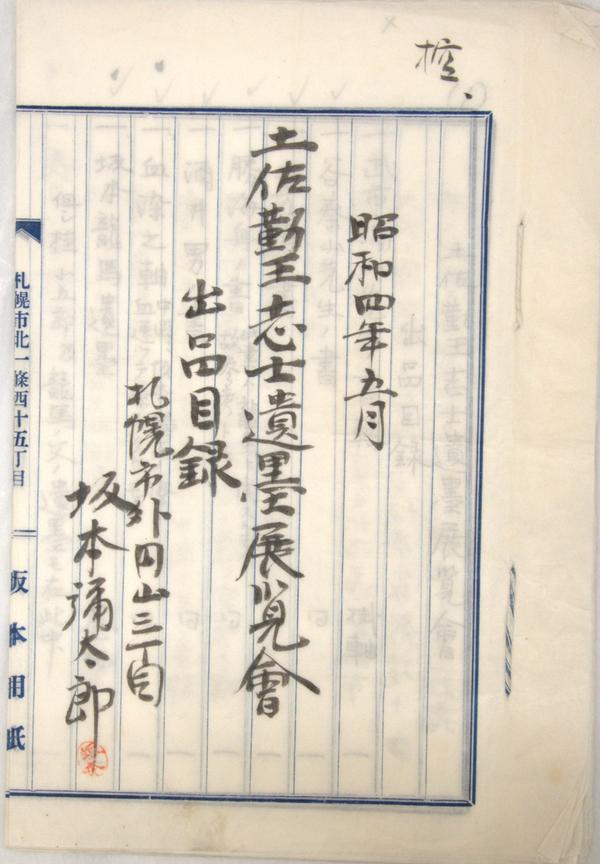 控、
昭和四年五月
土佐勤王志士遺墨展覧會
出品目録
札幌市外円山三丁目
坂本彌太郎
札幌市北一條西十五丁目
坂本用紙